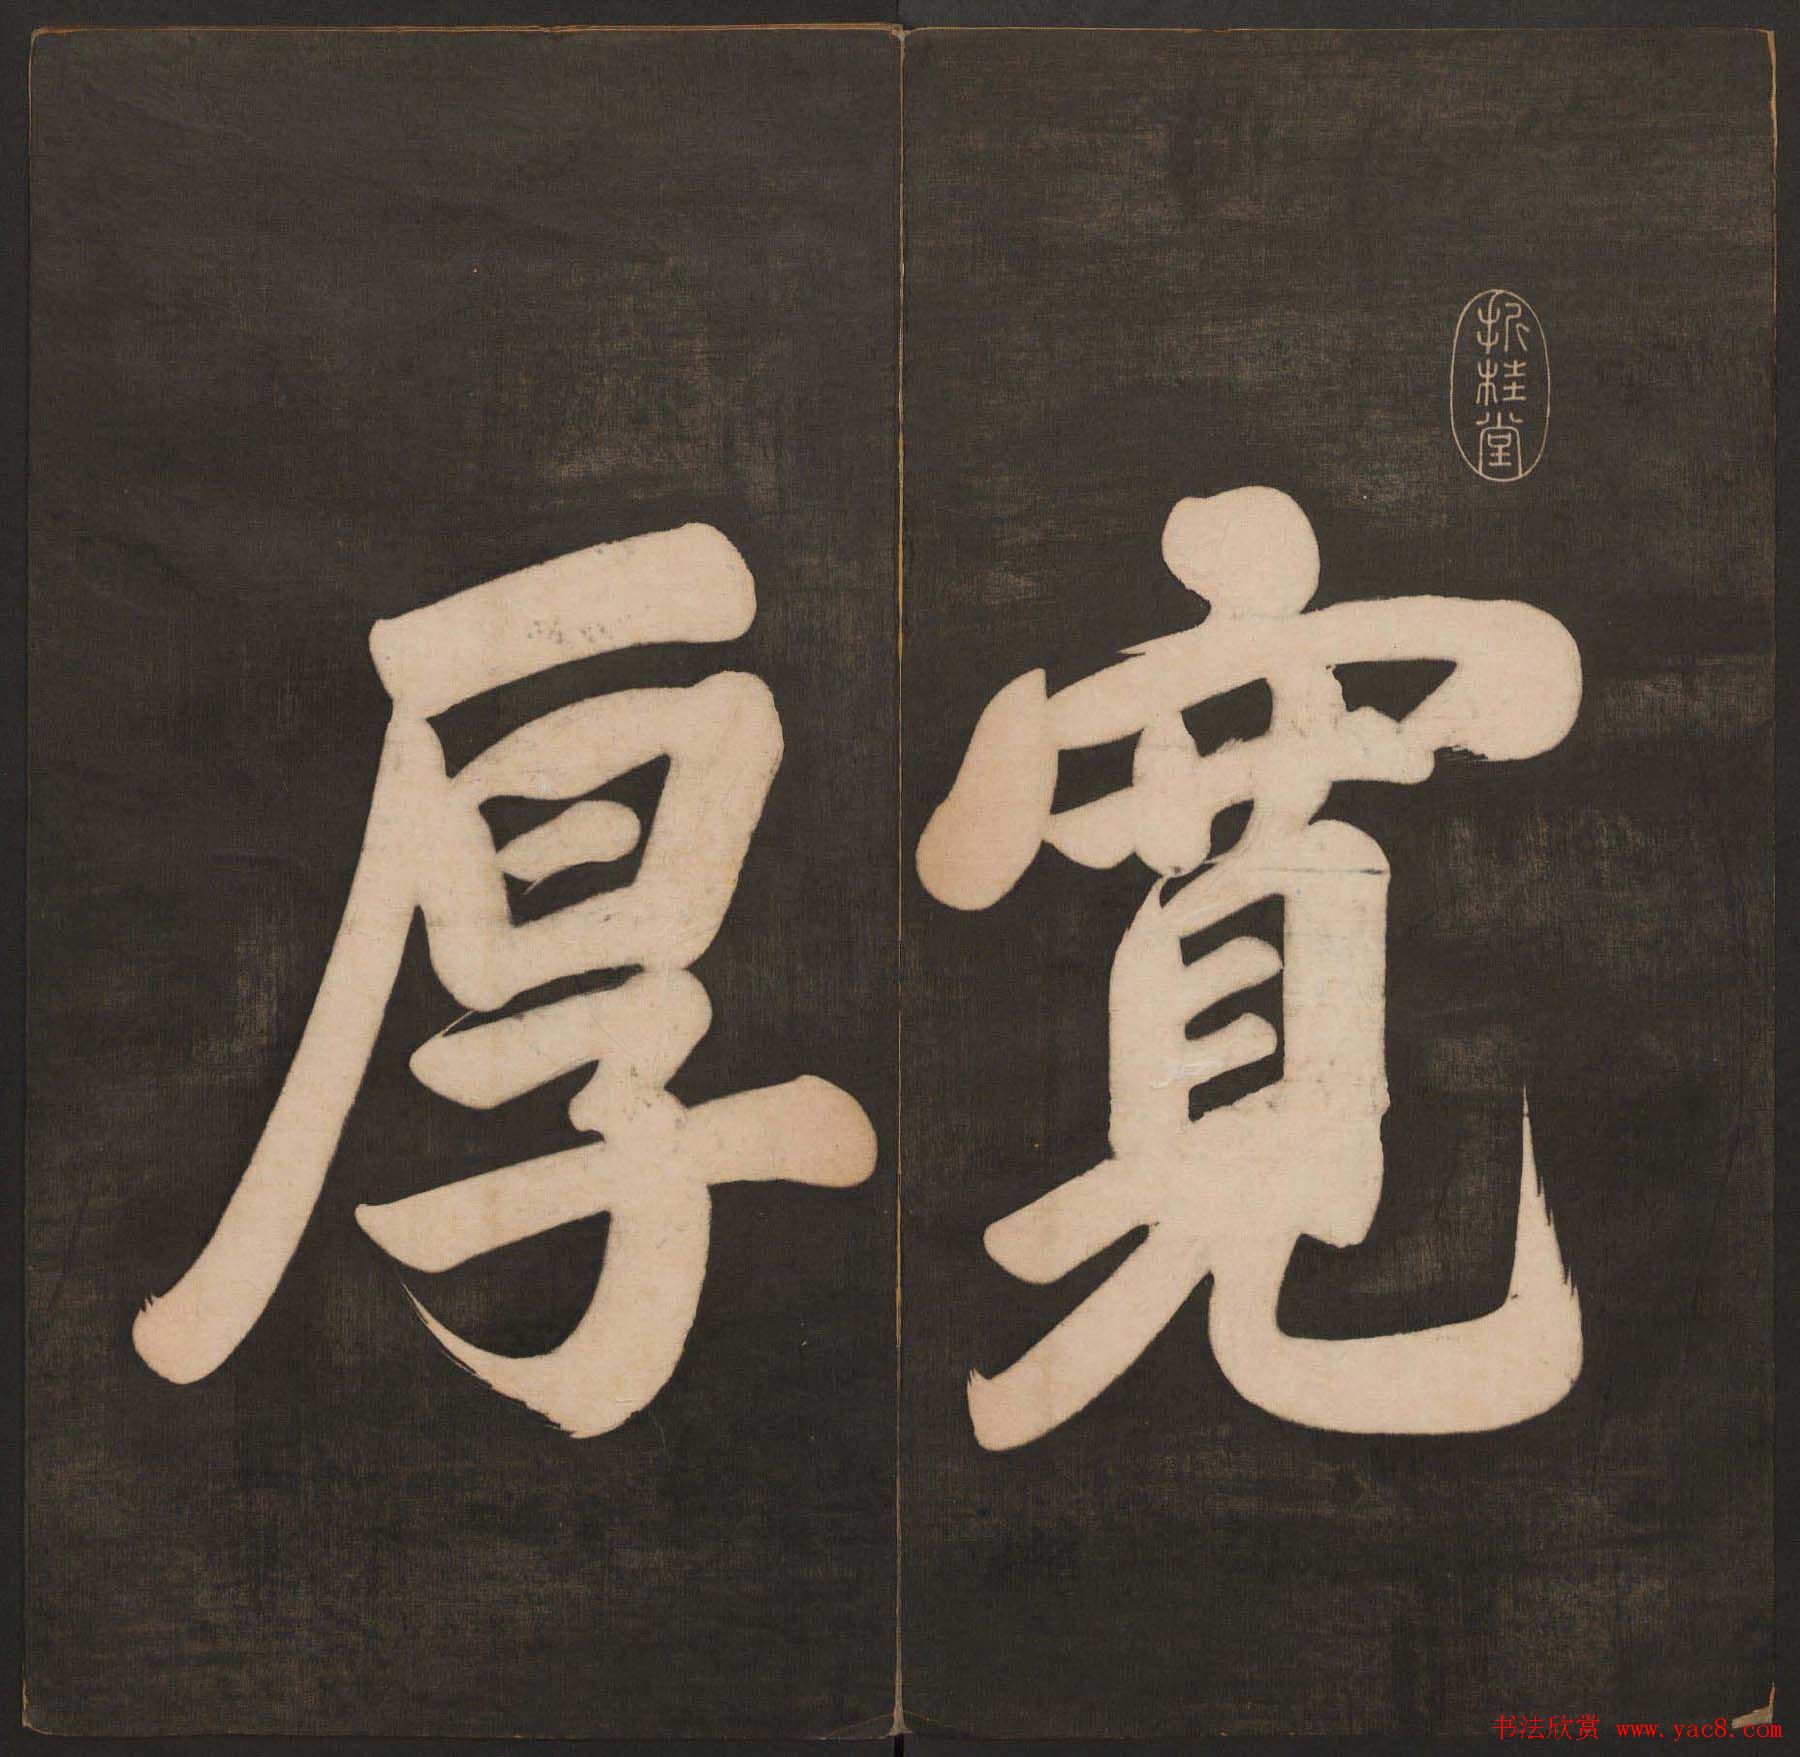 折桂堂
寬
厚
书法欣赏 www.yac8.com